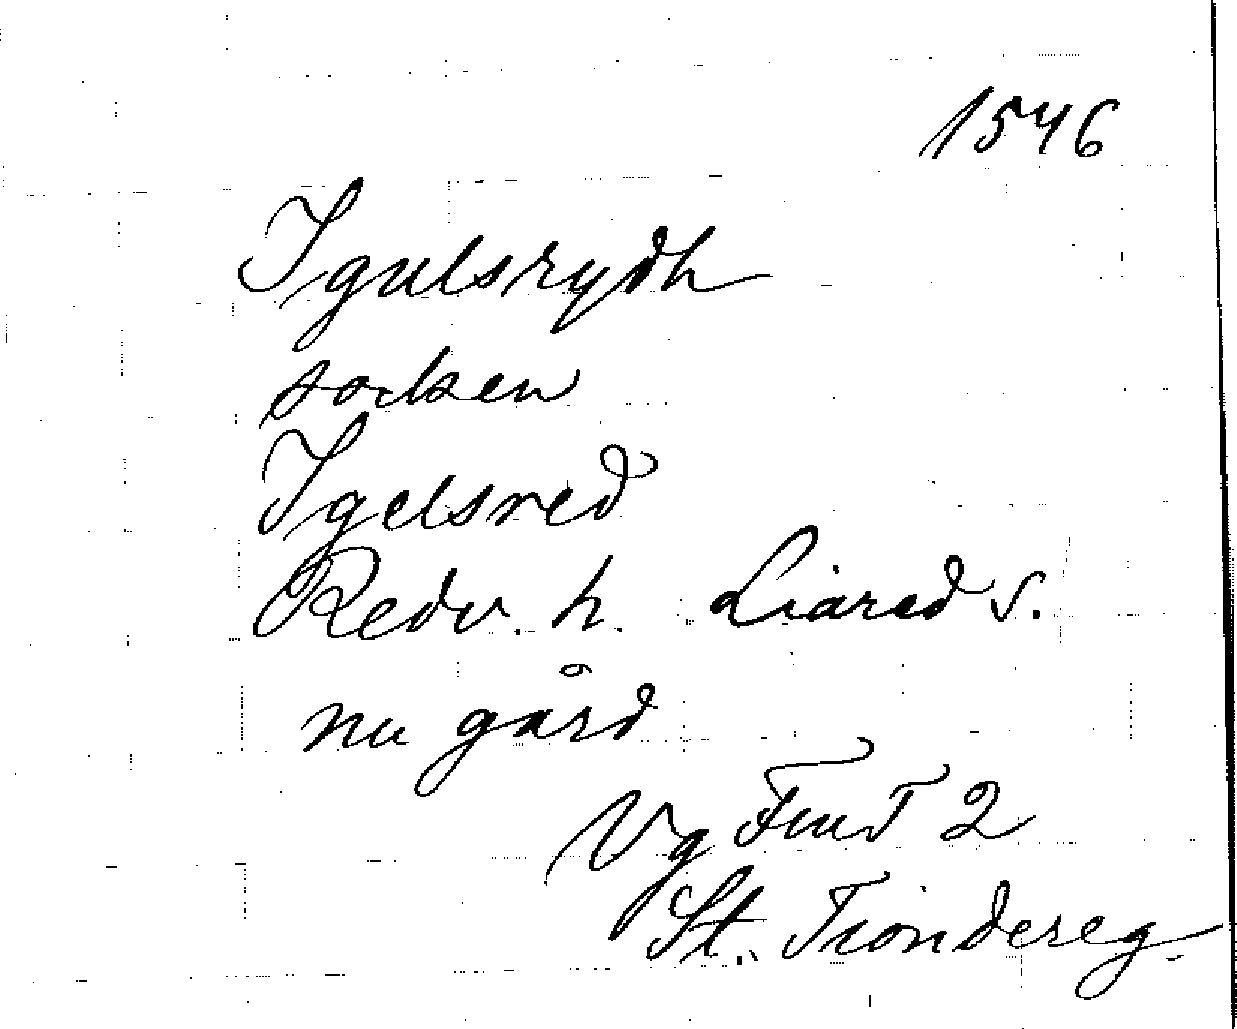 1546
Igulsrydh
socken
Igelsred
Redv. h. Liared s.
nu gård
Vg FmT 2
St. Tiondereg.